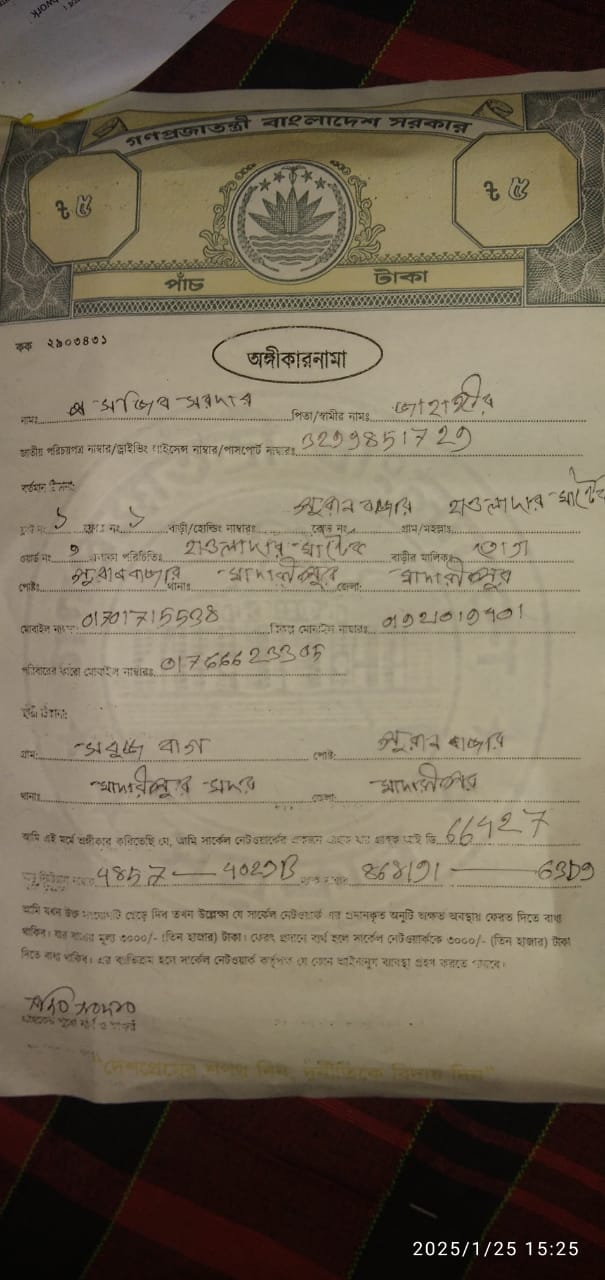 work
গণপ্রজাতন্ত্রী বাংলাদেশ সরকার
৳ ৫ ৳ ৫
পাঁচ টাকা
কক ২৯০৩৪৩১
অঙ্গীকারনামা
নামঃ সাজিব সরদার পিতা/স্বামীর নামঃ জাহাঙ্গীর
জাতীয় পরিচয়পত্র নাম্বার/ড্রাইভিং লাইসেন্স নাম্বার/পাসপোর্ট নাম্বারঃ 3299851729
বর্তমান ঠিকানা:
পুরান বাজার হাওলাদার
নং ১ নং ১ বাড়ী/হোল্ডিং নাম্বারঃ রোড নং গ্রাম/মহল্লাঃ
ওয়ার্ড নং ৭ এলাকা পরিচিতিঃ হাওলাদার বাড়ীর মালিকঃ
পোষ্টঃ পুরানবাজার থানাঃ মাদারীপুর জেলা: মাদারীপুর
মোবাইল 01701715538 মোবাইল নাম্বারঃ
পরিবারের কারো মোবাইল নাম্বারঃ
ঠিকানা:
গ্রাম: সবুজ বাগ পোষ্ট: পুরান বাজার
থানাঃ মাদারীপুর সদর জেলা: মাদারীপুর
আমি এই মর্মে অঙ্গীকার করিতেছি যে, আমি সার্কেল নেটওয়ার্কের একজন গ্রাহক যার গ্রাহক আই ডি 66427
4857 — 4029B 868191 — 63D9
আমি যখন উক্ত সংযোগটি ছেড়ে দিব তখন উল্লেক্ষ্য যে সার্কেল নেটওয়ার্ক এর প্রদানকৃত অনুটি অক্ষত অবস্থায় ফেরত দিতে বাধ্য
থাকিব। যার বাজার মূল্য ৩০০০/- (তিন হাজার) টাকা। ফেরৎ প্রদানে ব্যর্থ হলে সার্কেল নেটওয়ার্ককে ৩০০০/- (তিন হাজার) টাকা
দিতে বাধ্য থাকিব। এর ব্যতিক্রম হলে সার্কেল নেটওয়ার্ক কর্তৃপক্ষ যে কোন আইনানুগ ব্যবস্থা গ্রহণ করতে পারবে।
"দেশপ্রেমের শপথ নিন, দুর্নীতিকে বিদায় দিন"
2025/1/25 15:25